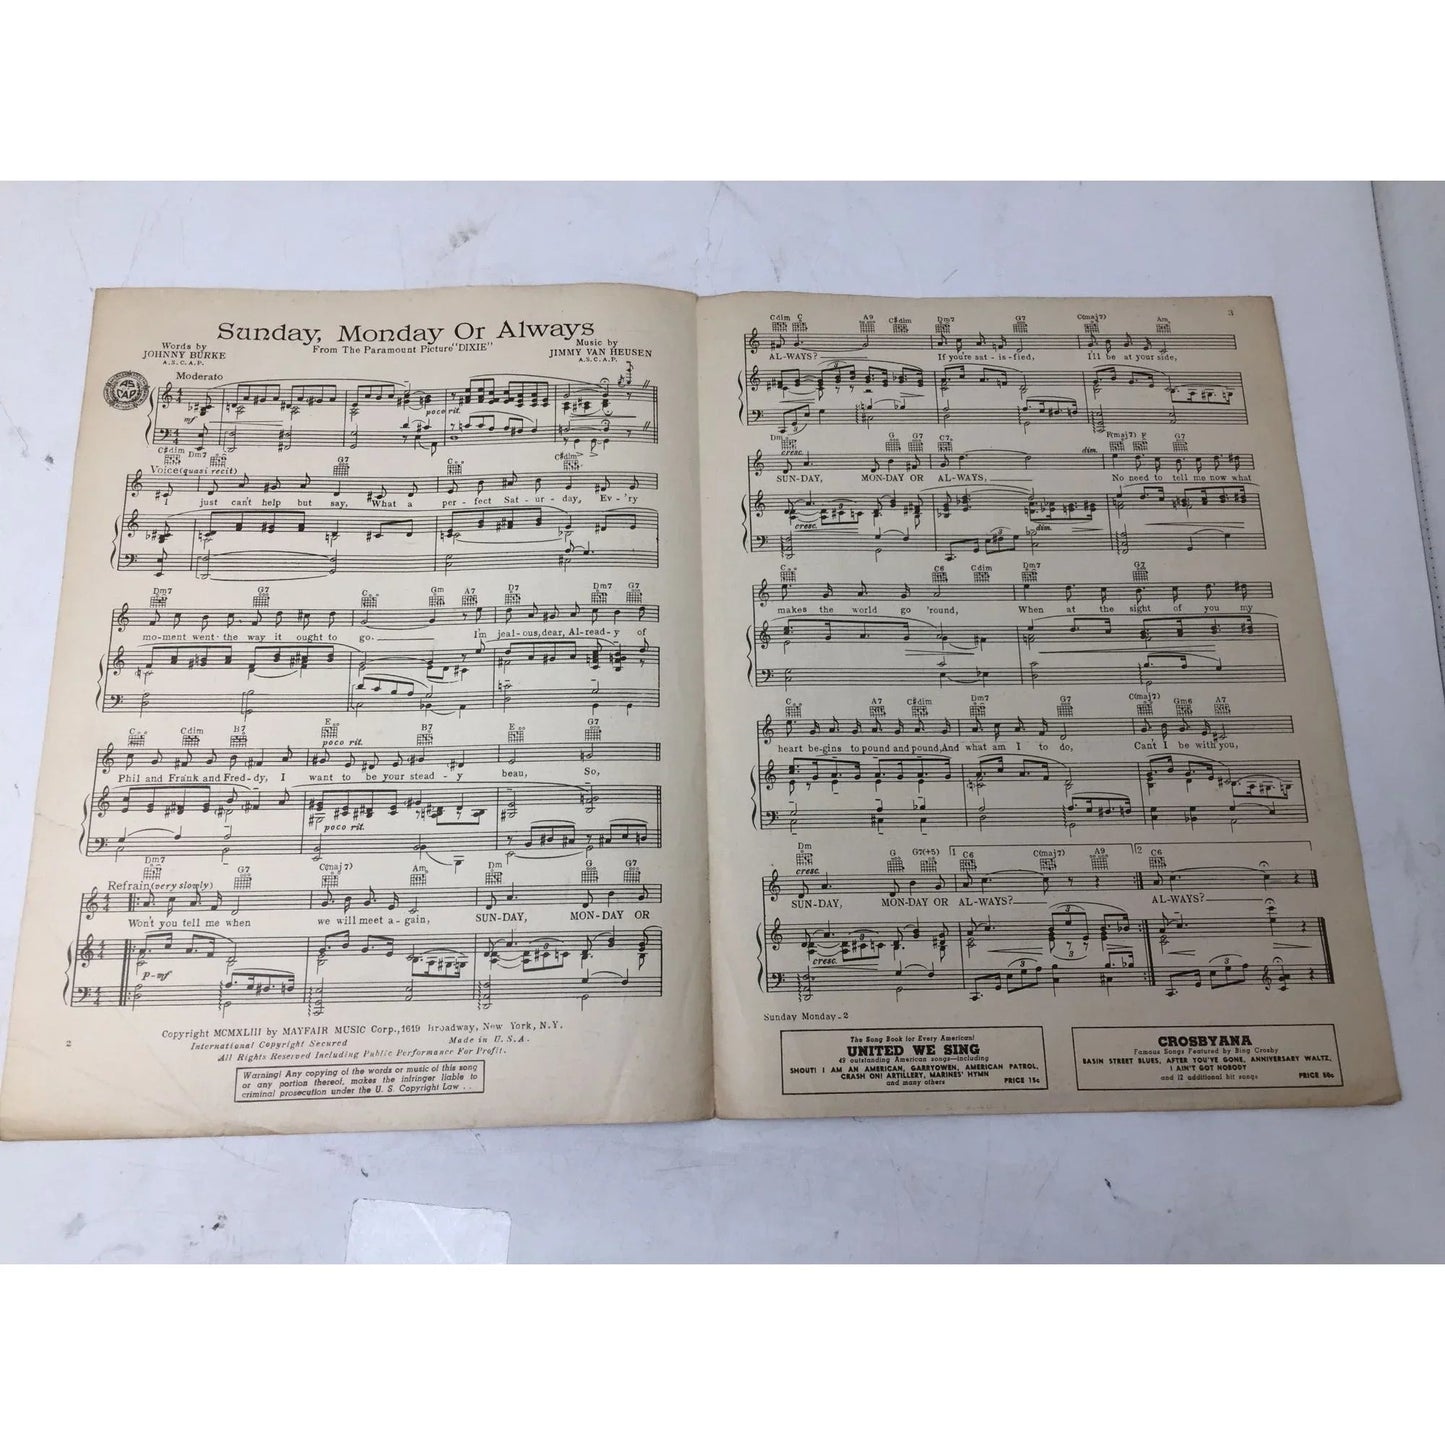 Sunday, Monday Or Always
From The Paramount Picture "DIXIE"
Words by
JOHNNY BURKE
A.S.C.A.P.
Music by
JIMMY VAN HEUSEN
A.S.C.A.P.
Moderato
mf
poco rit.
C#dim Dm7 G7 C C#dim
Voice (quasi recit)
I just can't help but say, What a per-fect Sat-ur-day, Ev-'ry
Dm7 G7 C Gm A7 D7 Dm7 G7
mo-ment went the way it ought to go. I'm jeal-ous, dear, Al-read-y of
C Cdim B7 E B7 E G7
poco rit.
Phil and Frank and Fred-dy, I want to be your stead-y beau, So,
poco rit.
Dm7 G7 C(maj7) Am Dm G G7
Refrain (very slowly)
Won't you tell me when we will meet a-gain, SUN-DAY, MON-DAY OR
p-mf
cresc.
Copyright MCMXLIII by MAYFAIR MUSIC Corp., 1619 Broadway, New York, N.Y.
International Copyright Secured Made in U.S.A.
All Rights Reserved Including Public Performance For Profit.
2
Warning! Any copying of the words or music of this song
or any portion thereof, makes the infringer liable to
criminal prosecution under the U. S. Copyright Law . .
3
Cdim C A9 C#dim Dm7 G7 C(maj7) Am
AL-WAYS? If you're sat-is-fied, I'll be at your side,
3
Dm G G7 C7 F(maj7) F G7
cresc. dim.
SUN-DAY, MON-DAY OR AL-WAYS, No need to tell me now what
cresc. dim.
C C6 Cdim Dm7 G7
makes the world go 'round, When at the sight of you my
C A7 C#dim Dm7 G7 C(maj7) Gm6 A7
heart be-gins to pound and pound, And what am I to do, Can't I be with you,
Dm G G7(+5) 1 C6 C(maj7) A9 2 C6
cresc.
SUN-DAY, MON-DAY OR AL-WAYS? AL-WAYS?
cresc. 3 3 3 3 3
Sunday Monday-2
The Song Book for Every American!
UNITED WE SING
49 outstanding American songs—including
SHOUT! I AM AN AMERICAN, GARRYOWEN, AMERICAN PATROL,
CRASH ON! ARTILLERY, MARINES' HYMN
and many others PRICE 15c
CROSBYANA
Famous Songs Featured by Bing Crosby
BASIN STREET BLUES, AFTER YOU'VE GONE, ANNIVERSARY WALTZ,
I AIN'T GOT NOBODY
and 12 additional hit songs PRICE 50c